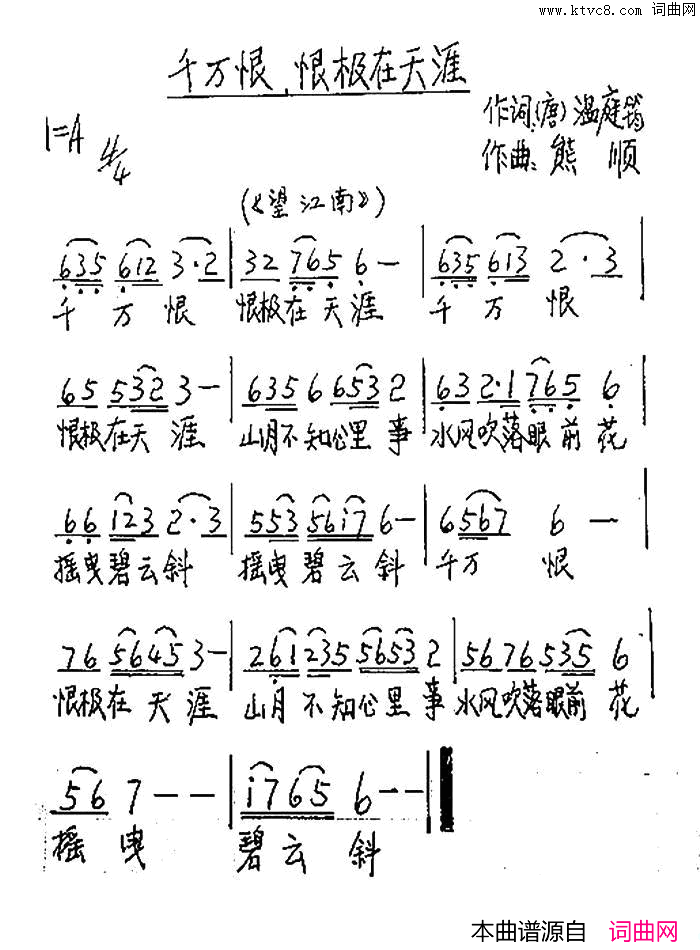 www.ktvc8.com 词曲网
千万恨,恨极在天涯
1=A 4/4
作词:(唐)温庭筠
作曲:熊 顺
(《望江南》)
635 612 3·2 | 32 765 6 — | 635 613 2·3 |
千 万 恨 恨极在天涯 千 万 恨
65 532 3 — | 635 6 653 2 | 632·1 765 6
恨极在天涯 山月不知心里事 水风吹落眼前花
66 123 2·3 | 553 56i7 6 — | 6567 6 — |
摇曳碧云斜 摇曳碧云斜 千万 恨
76 5645 3 — | 261 235 5653 2 | 56 76 535 6 |
恨极在天涯 山月不知心里事 水风吹落眼前花
56 7 — — | i765 6 — — ‖
摇曳 碧云斜
本曲谱源自 词曲网